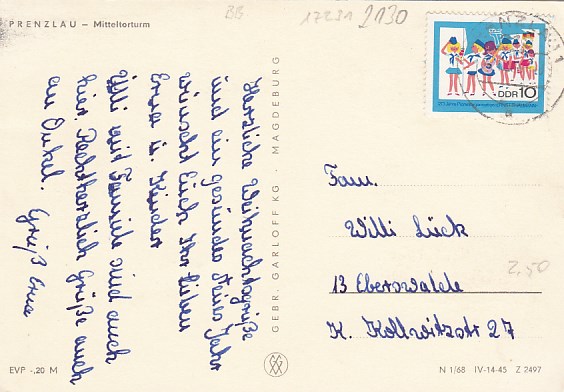 PRENZLAU – Mitteltorturm
BB
17291
2130
DDR 10
Herzliche Weihnachtsgrüße
und ein gesundes neues Jahr
wünscht Euch Ihr Lieben
Erna u. Kinder
Willi mit Familie sind auch
hier Recht herzlich Grüße auch
an Onkel. Gruß Erna
GEBR. GARLOFF KG · MAGDEBURG
Fam.
Willi Lück
13 Eberswalde
K. Kollwitzstr 27
2,50
EVP -,20 M
N 1/68 IV-14-45 Z 2497